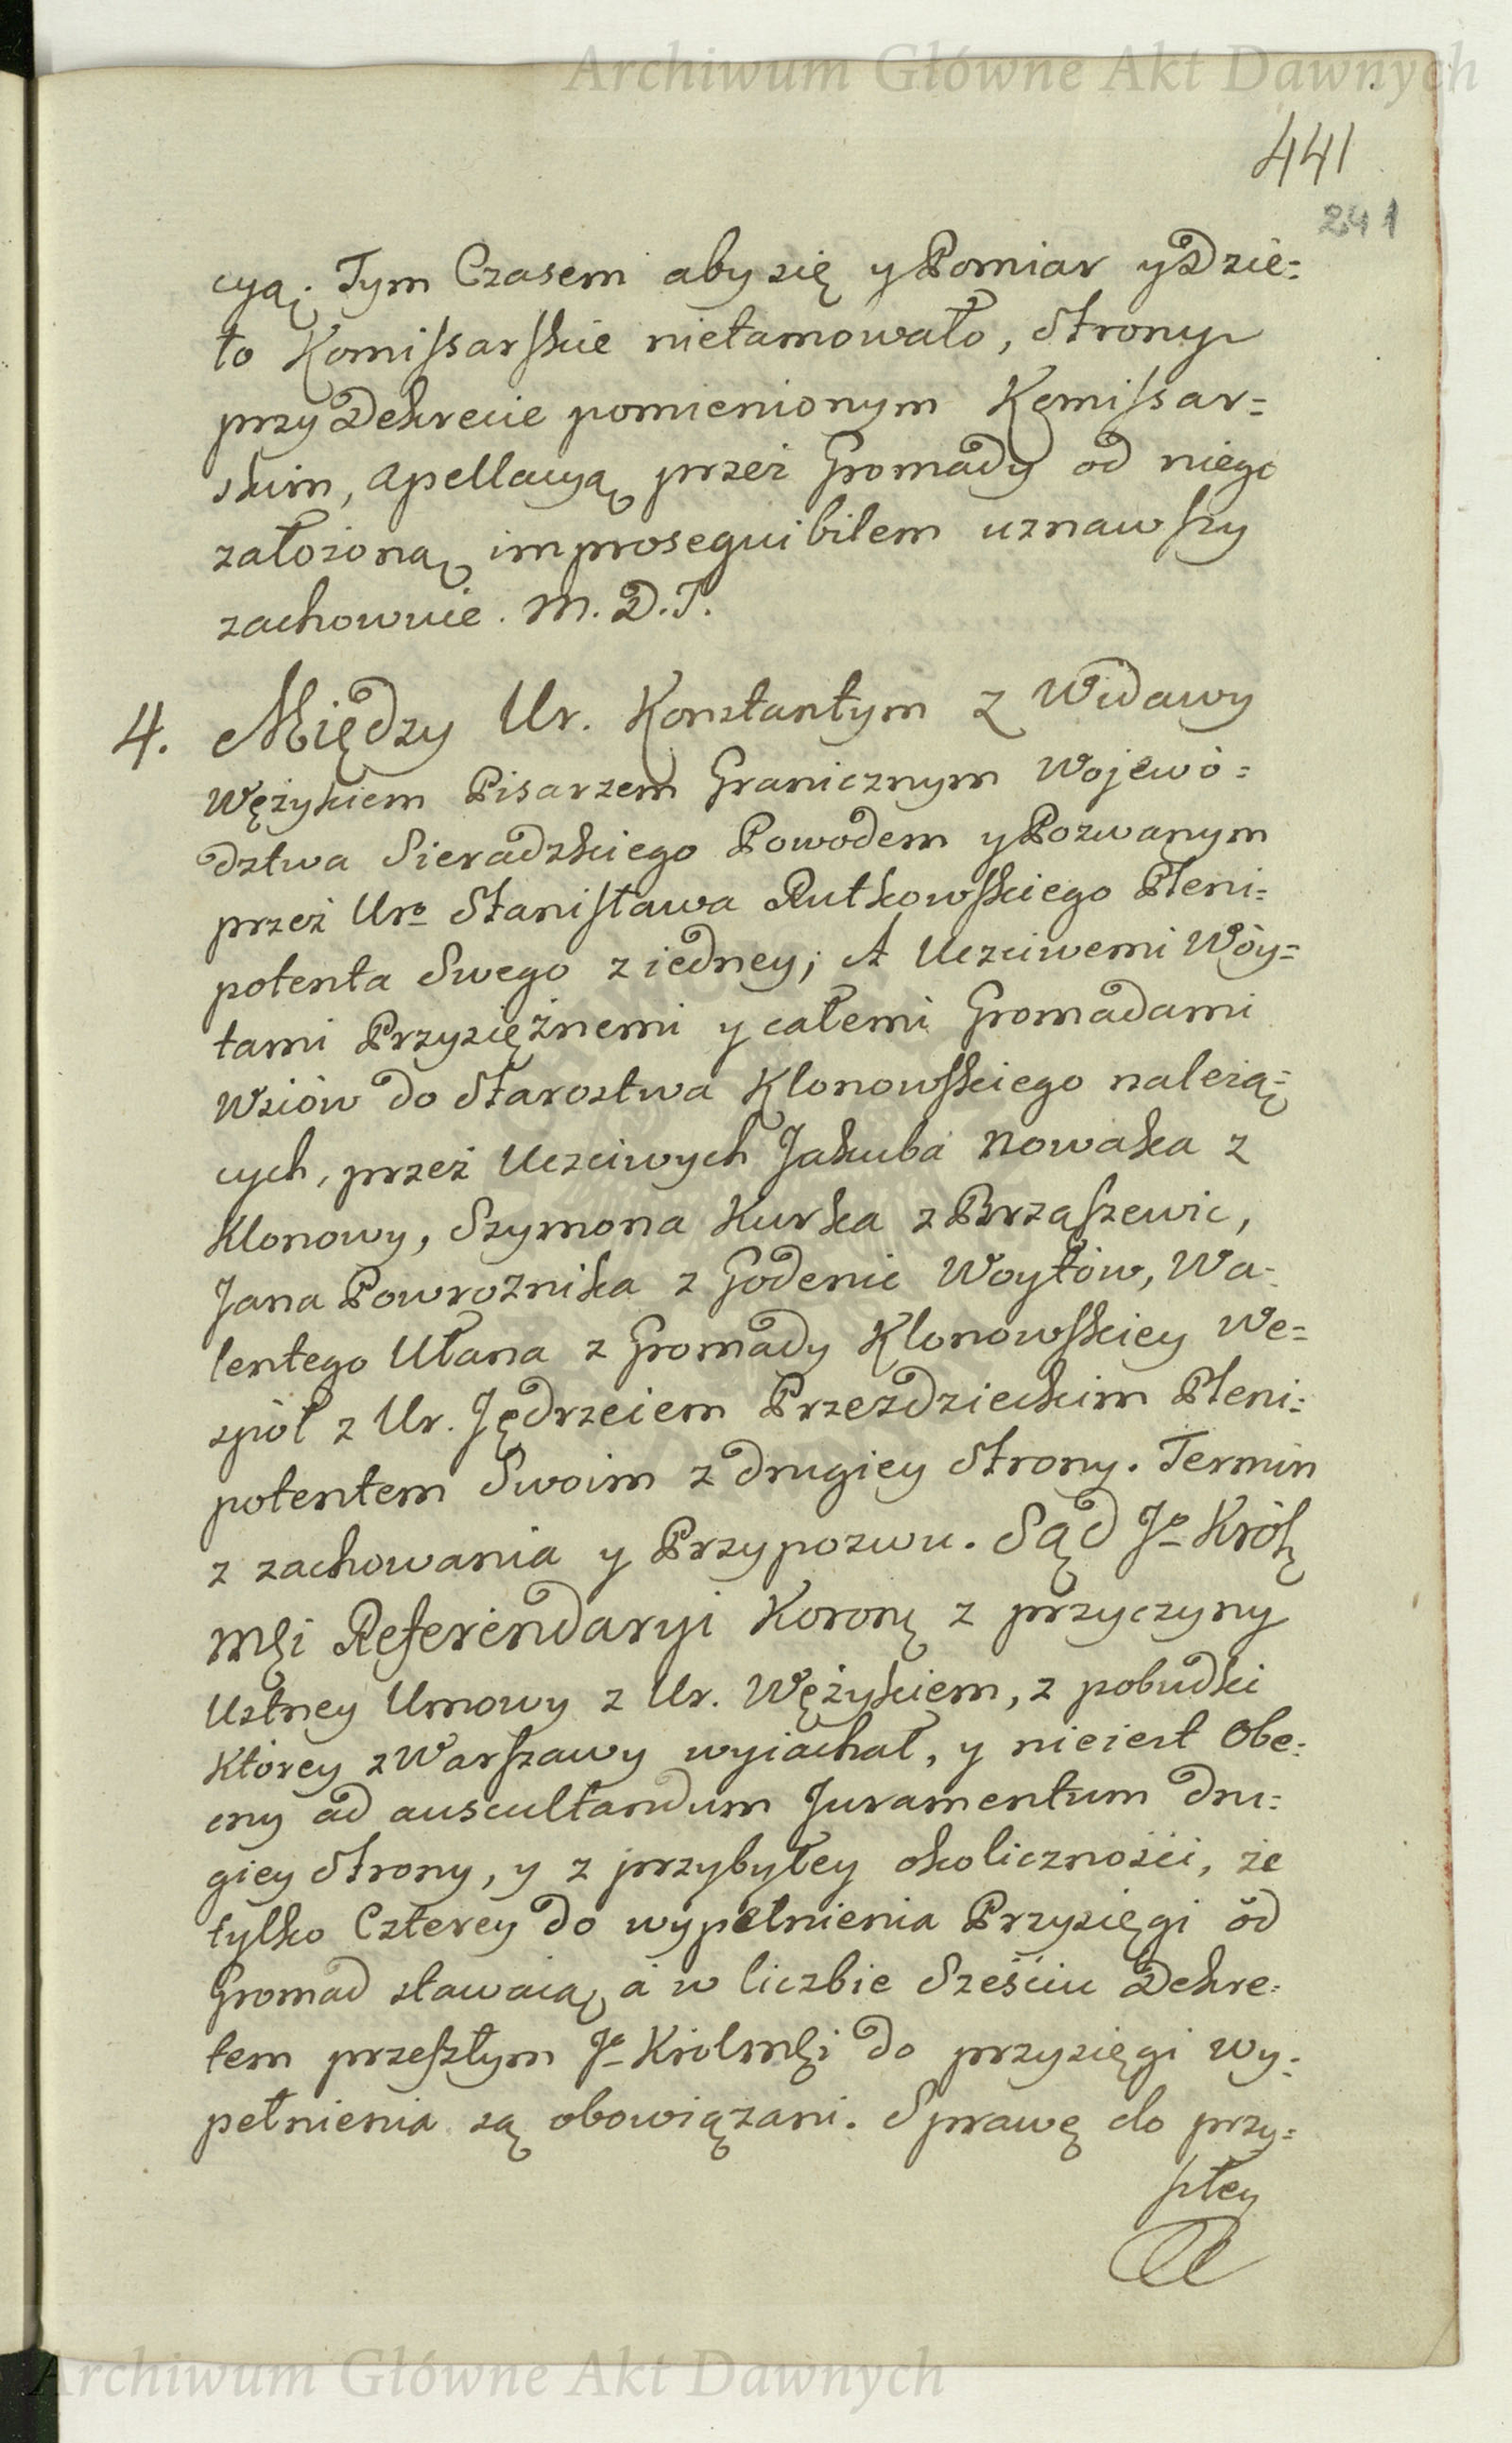 Archiwum Główne Akt Dawnych
441
241
cyą. Tym Czasem aby się y Pomiar y Dzie=
ło Komissarskie nietamowało, Strony
przy Dekrecie pomienionym Komissar=
skim, Apellacyą przez Gromady od niego
założoną improsequibilem uznawszy
zachowuie. M. D. T.
4. Między Ur. Konstantym z Widawy
Wężykiem Pisarzem Granicznym Wojewó=
dztwa Sieradzkiego Powodem y Pozwanym
przez Uro Stanisława Rutkowskiego Pleni=
potenta Swego z iedney; A Uczciwemi Wóy=
tami Przysiężnemi y całemi Gromadami
Wsiów do Starostwa Klonowskiego należą=
cych, przez Uczciwych Jakuba Nowaka z
Klonowy, Szymona Kurka z Brząszewic,
Jana Powroznika z Godenic Woytów, Wa=
lentego Ułana z Gromady Klonowskiey We=
spół z Ur. Jędrzeiem Przezdzieckim Pleni=
potentem Swoim z drugiey Strony. Termin
z zachowania y Przypozwu. Sąd Jo Krół
Mći Referendaryi Koronȩ z przyczyny
Ustney Umowy z Ur. Wężykiem, z pobudki
Którey z Warszawy wyiachał, y nieiest Obe=
cny ad auscultandum Juramentum dru=
giey Strony, y z przybyłey okoliczności, że
tylko Czterey do wypełnienia Przysięgi od
Gromad stawaią, a w liczbie Sześciu Dekre=
tem przeszłym Jo Królmći do przysięgi wy=
pełnienia są obowiązani. Sprawę do przy=
szłey
Archiwum Główne Akt Dawnych